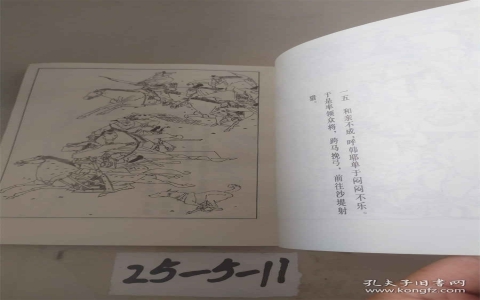 一五 和亲不成，呼韩耶单于闷闷不乐、
于是率领众将，跨马挽弓，前往沙堤射
猎。
25-5-11
孔夫子旧书网
www.kongfz.com